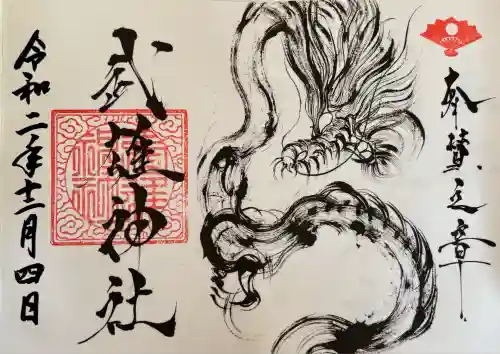 奉賛之章
武 神社
令和二年十二月四日